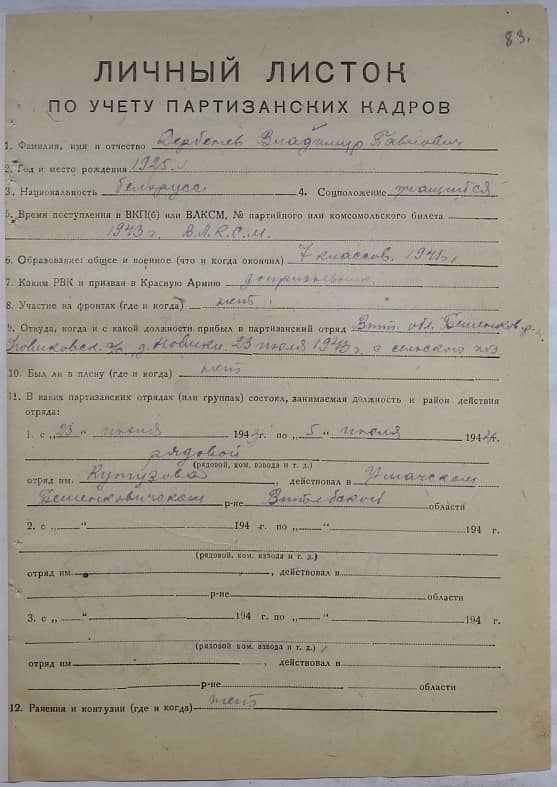 83.
ЛИЧНЫЙ ЛИСТОК
ПО УЧЕТУ ПАРТИЗАНСКИХ КАДРОВ
1. Фамилия, имя и отчество Дербенев Владимир Павлович
2. Год и место рождения 1925 г.
3. Национальность белорусс 4. Соцположение учащийся
5. Время поступления в ВКП(б) или ВЛКСМ, № партийного или комсомольского билета
1943 г. В.Л.К.С.М.
6. Образование: общее и военное (что и когда окончил) 7 классов. 1941 г.
7. Каким РВК и призван в Красную Армию допризывник.
8. Участие на фронтах (где и когда) нет
9. Откуда, когда и с какой должности прибыл в партизанский отряд Вит. обл. Бешенков. р-н.
д. Новики. 23 июля 1943 г. с сельского хоз.
10. Был ли в плену (где и когда) нет
11. В каких партизанских отрядах (или группах) состоял, занимаемая должность и район действия
отряда:
1. с „23“ июля 1943 г. по „5“ июля 1944 г.
рядовой
(рядовой, ком. взвода и т. д.)
отряд им. , действовал в Ушачском
Бешенковичском р-не Витебской области
2. с „ “ 194 г. по „ “ 194 г.
(рядовой, ком. взвода и т. д.)
отряд им. , действовал в
р-не области
3. с „ “ 194 г. по „ “ 194 г.
(рядовой, ком. взвода и т. д.)
отряд им , действовал в
р-не области
12. Ранения и контузии (где и когда) нет